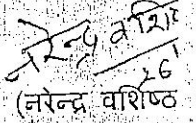 नरेन्द्र वशि
26
(नरेन्द्र वशिष्ठ